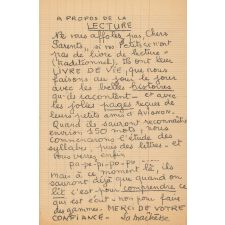 A PROPOS DE LA
LECTURE
Ne vous affolez pas, Chers
Parents, si vos Petits n'ont
pas de livre de lecture
(traditionnel), ils ont leur
LIVRE DE VIE, que nous
faisons au jour le jour
avec les belles histoires
qu'ils racontent - et avec
les folies pages reçues de
leurs petits amis d'Avignon.
Quand ils sauront reconnaître
environ 150 mots, nous
commencerons l'étude des
syllabes, puis des lettres - et
vous verrez enfin
pa-pe-pi-po-pu
mais à ce moment là, ils
sauront déjà que quand on
lit c'est pour comprendre ce
qui est écrit - non pour faire
des gammes - MERCI DE VOTRE
CONFIANCE - La maîtresse